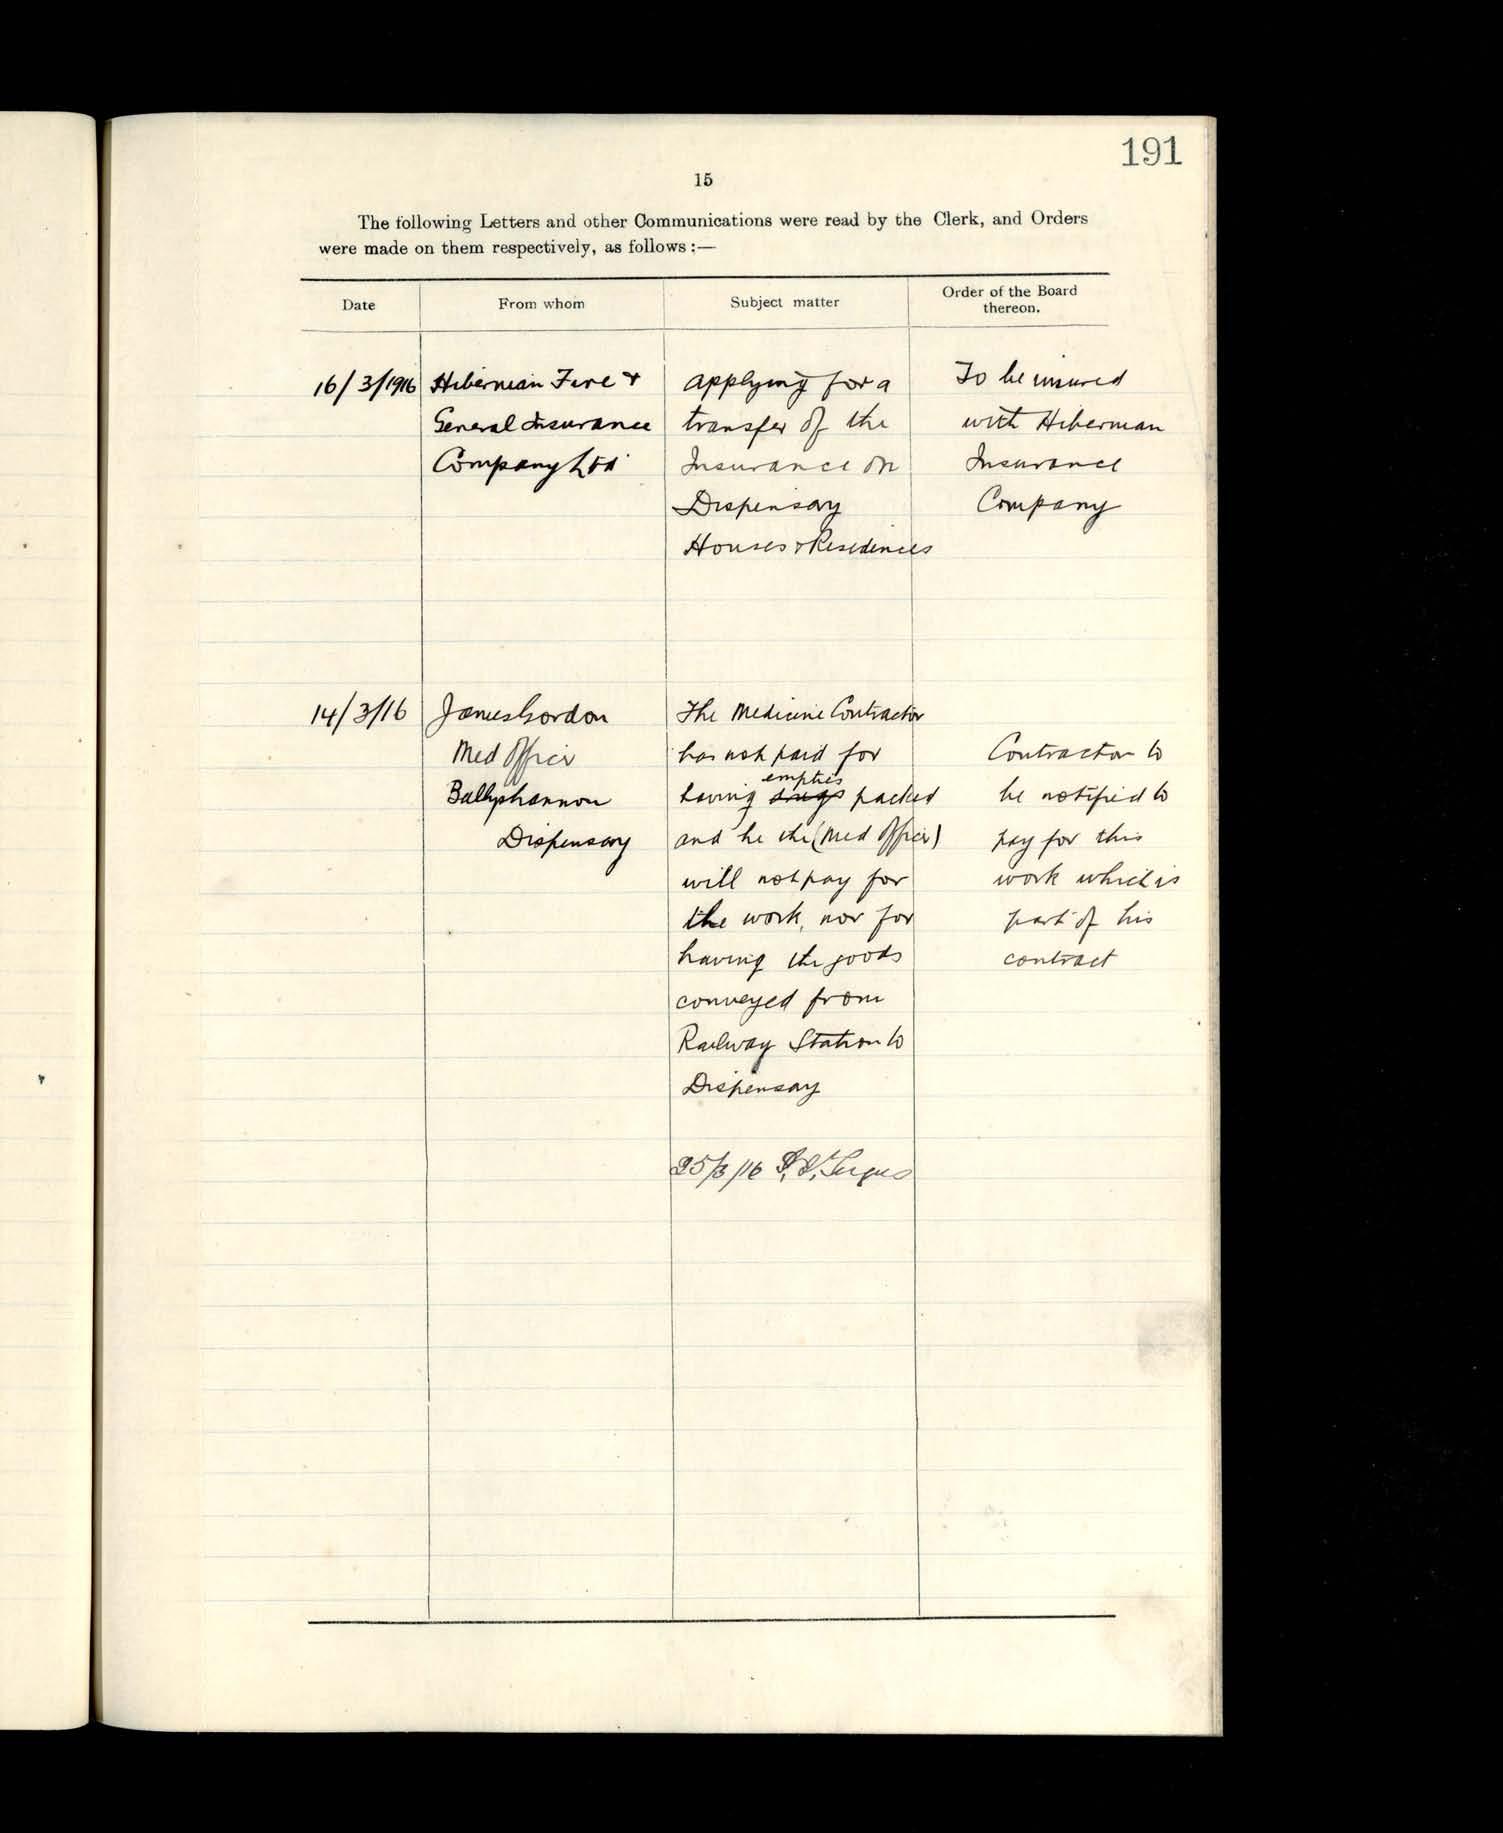 191
15
The following Letters and other Communications were read by the Clerk, and Orders
were made on them respectively, as follows :—
Date
From whom
Subject matter
Order of the Board
thereon.
16/3/1916
Hibernian Fire &
General Insurance
Company Ltd
applying for a
transfer of the
Insurance on
Dispensary
Houses & Residences
To be insured
with Hibernian
Insurance
Company
14/3/16
James Gordon
Med Officer
Ballyshannon
Dispensary
The Medicine Contractor
has not paid for
empties
having drugs packed
and he the (Med Officer)
will not pay for
the work, nor for
having the goods
conveyed from
Railway Station to
Dispensary
Contractor to
be notified to
pay for this
work which is
part of his
contract
25/3/16